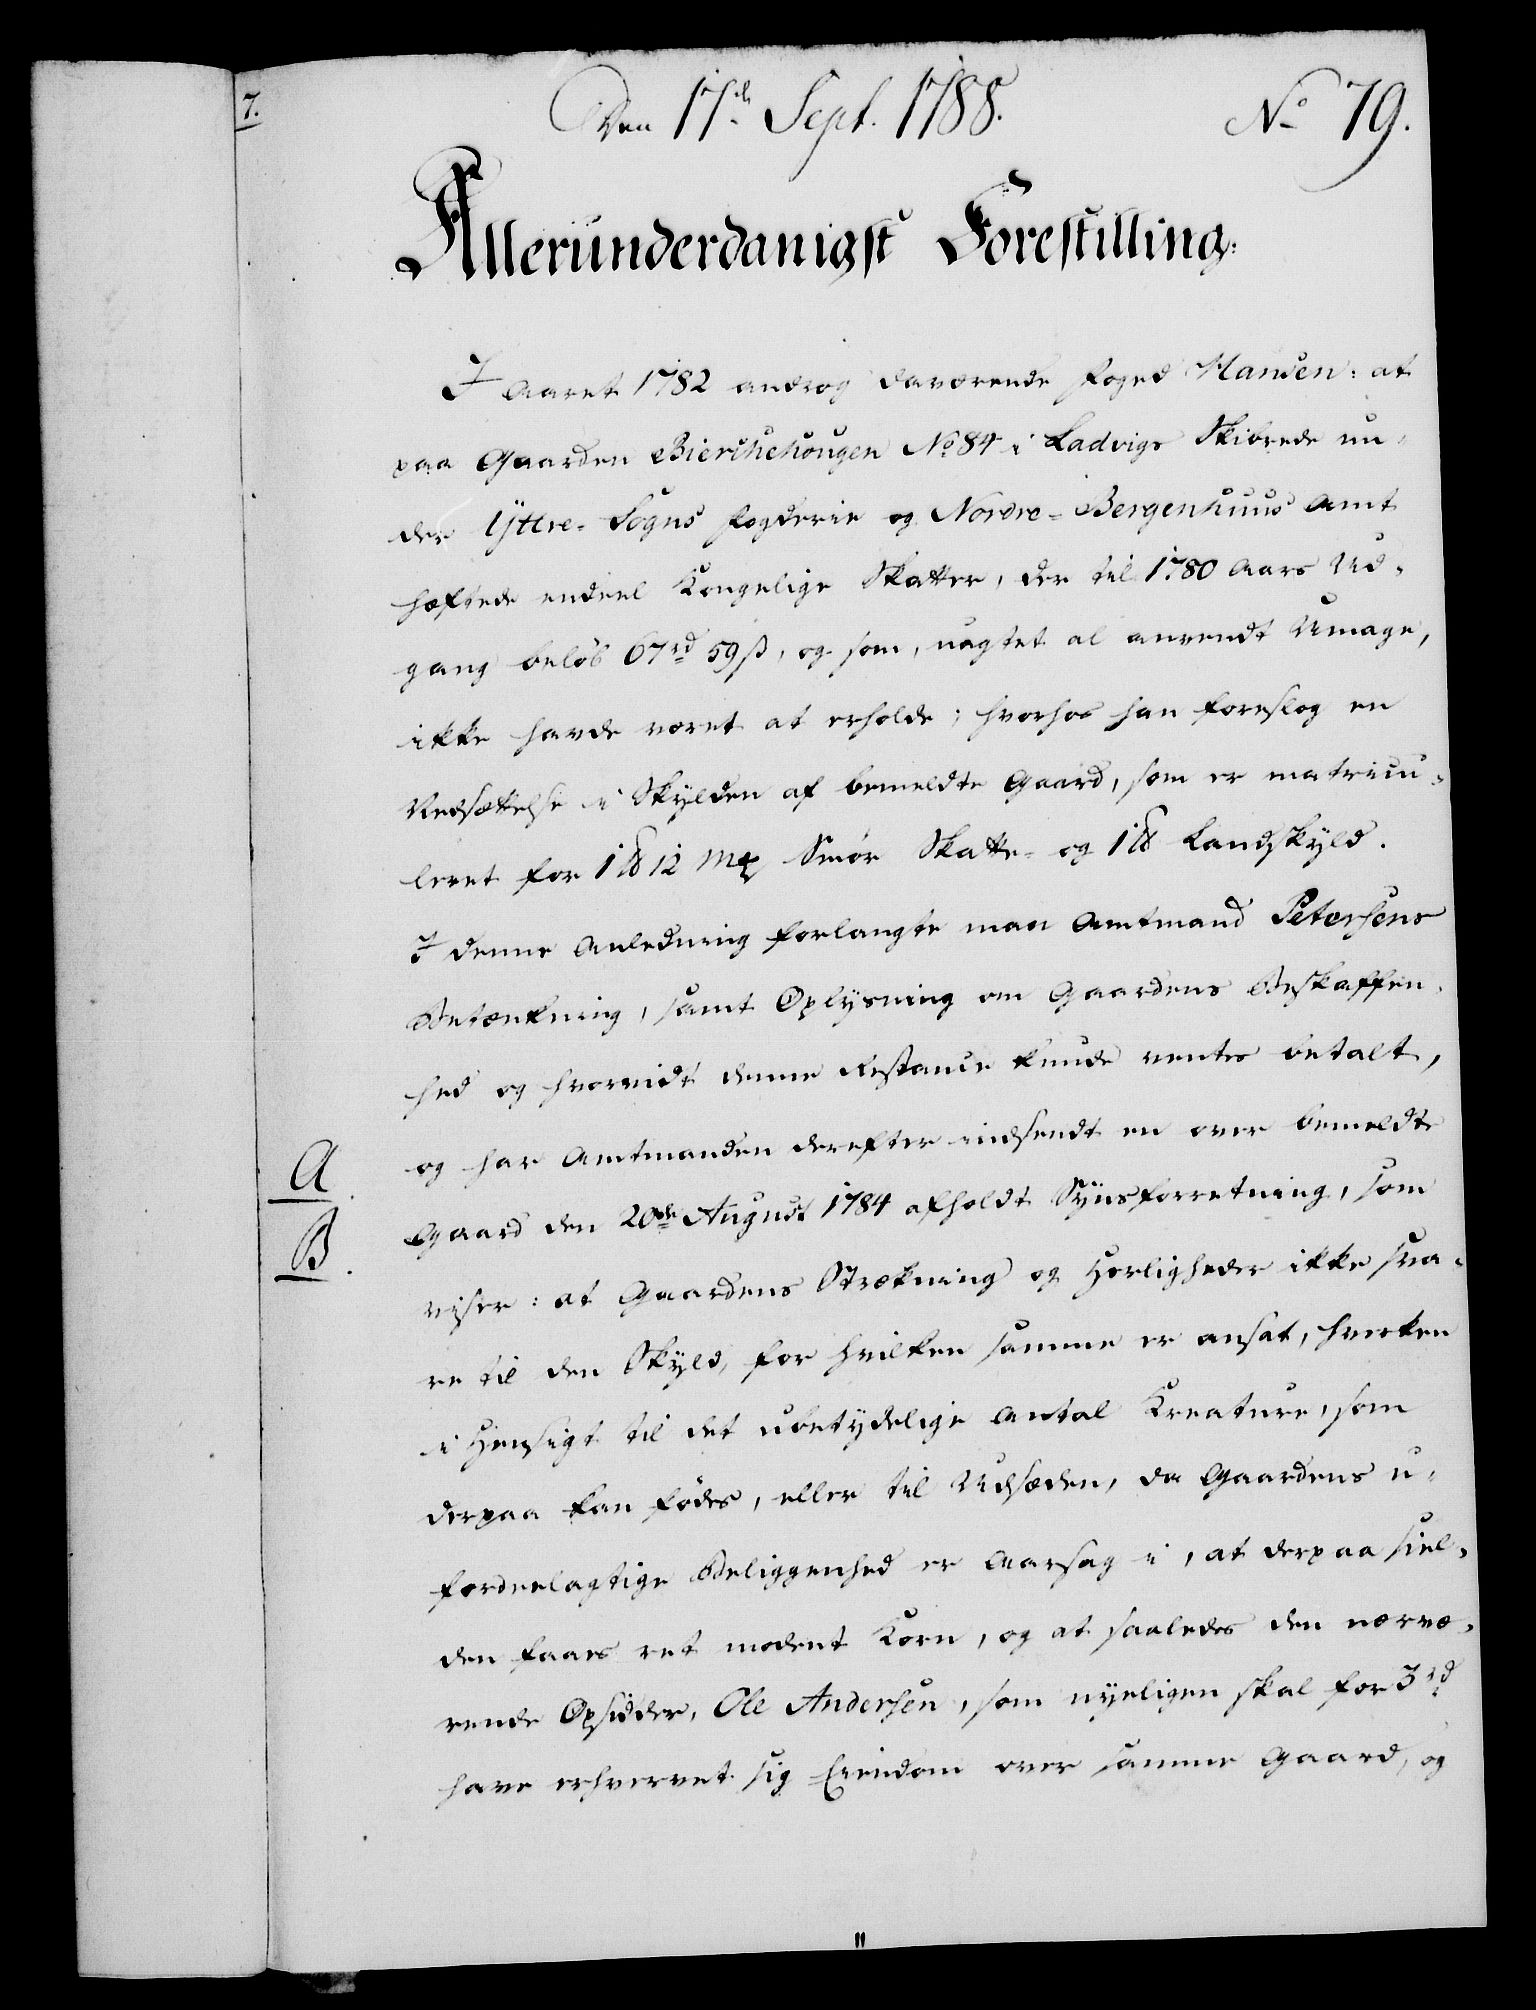 7.
Den 17de Sept. 1788.
No 79.
Allerunderdanigst Forestilling:
I Aaret 1782 androg daværende Foged Hansen: at
paa Gaarden Bierchehougen No 84 i Ladvigs Skibrede un-
der Yttre-Sogns Fogderie og Nordre-Bergenhuus Amt
hæftede endeel Kongelige Skatter, der til 1780 Aars Ud-
gang beløb 67rd 59ß, og som, uagtet al anvendt Umage,
ikke havde været at erholde; hvorhos han foreslog en
Nedsættelse i Skylden af bemeldte Gaard, som er matricu-
leret for 1 ℔ 12 mk Smør Skatte- og 1 ℔ Landskyld.
I denne Anledning forlangte man Amtmand Petersens
Betænkning, samt Oplysning om Gaardens Beskaffen-
hed og hvorvidt denne Restance kunde ventes betalt,
A.
og har Amtmanden derefter indsendt en over bemeldte
B.
Gaard den 20de August 1784 afholdt Synsforretning, som
viser: at Gaardens Strækning og Herligheder ikke sva-
re til den Skyld, for hvilken samme er ansat, hverken
i Hensigt til det ubetydelige Antal Kreature, som
derpaa kan fødes, eller til Udsæden, da Gaardens u-
fordeelagtige Beliggenhed er Aarsag i, at derpaa siel-
den faaes ret modent Korn, og at saaledes den nærvæ-
rende Opsidder, Ole Andersen, som nyeligen skal for 3rd
have erhvervet sig Eiendom over samme Gaard, og